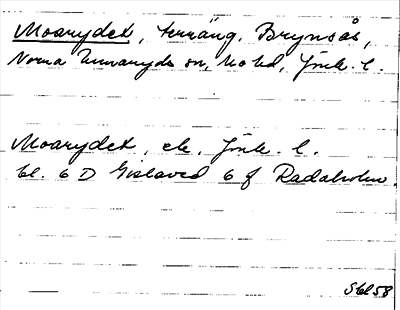 Moarydet, terräng. Brynsås,
Norra Unnaryds sn, Mo hd, Jönk. l.
Moarydet, ek. Jönk. l.
bl. 6 D Gislaved 6 f Radaholm.
Sbl 58